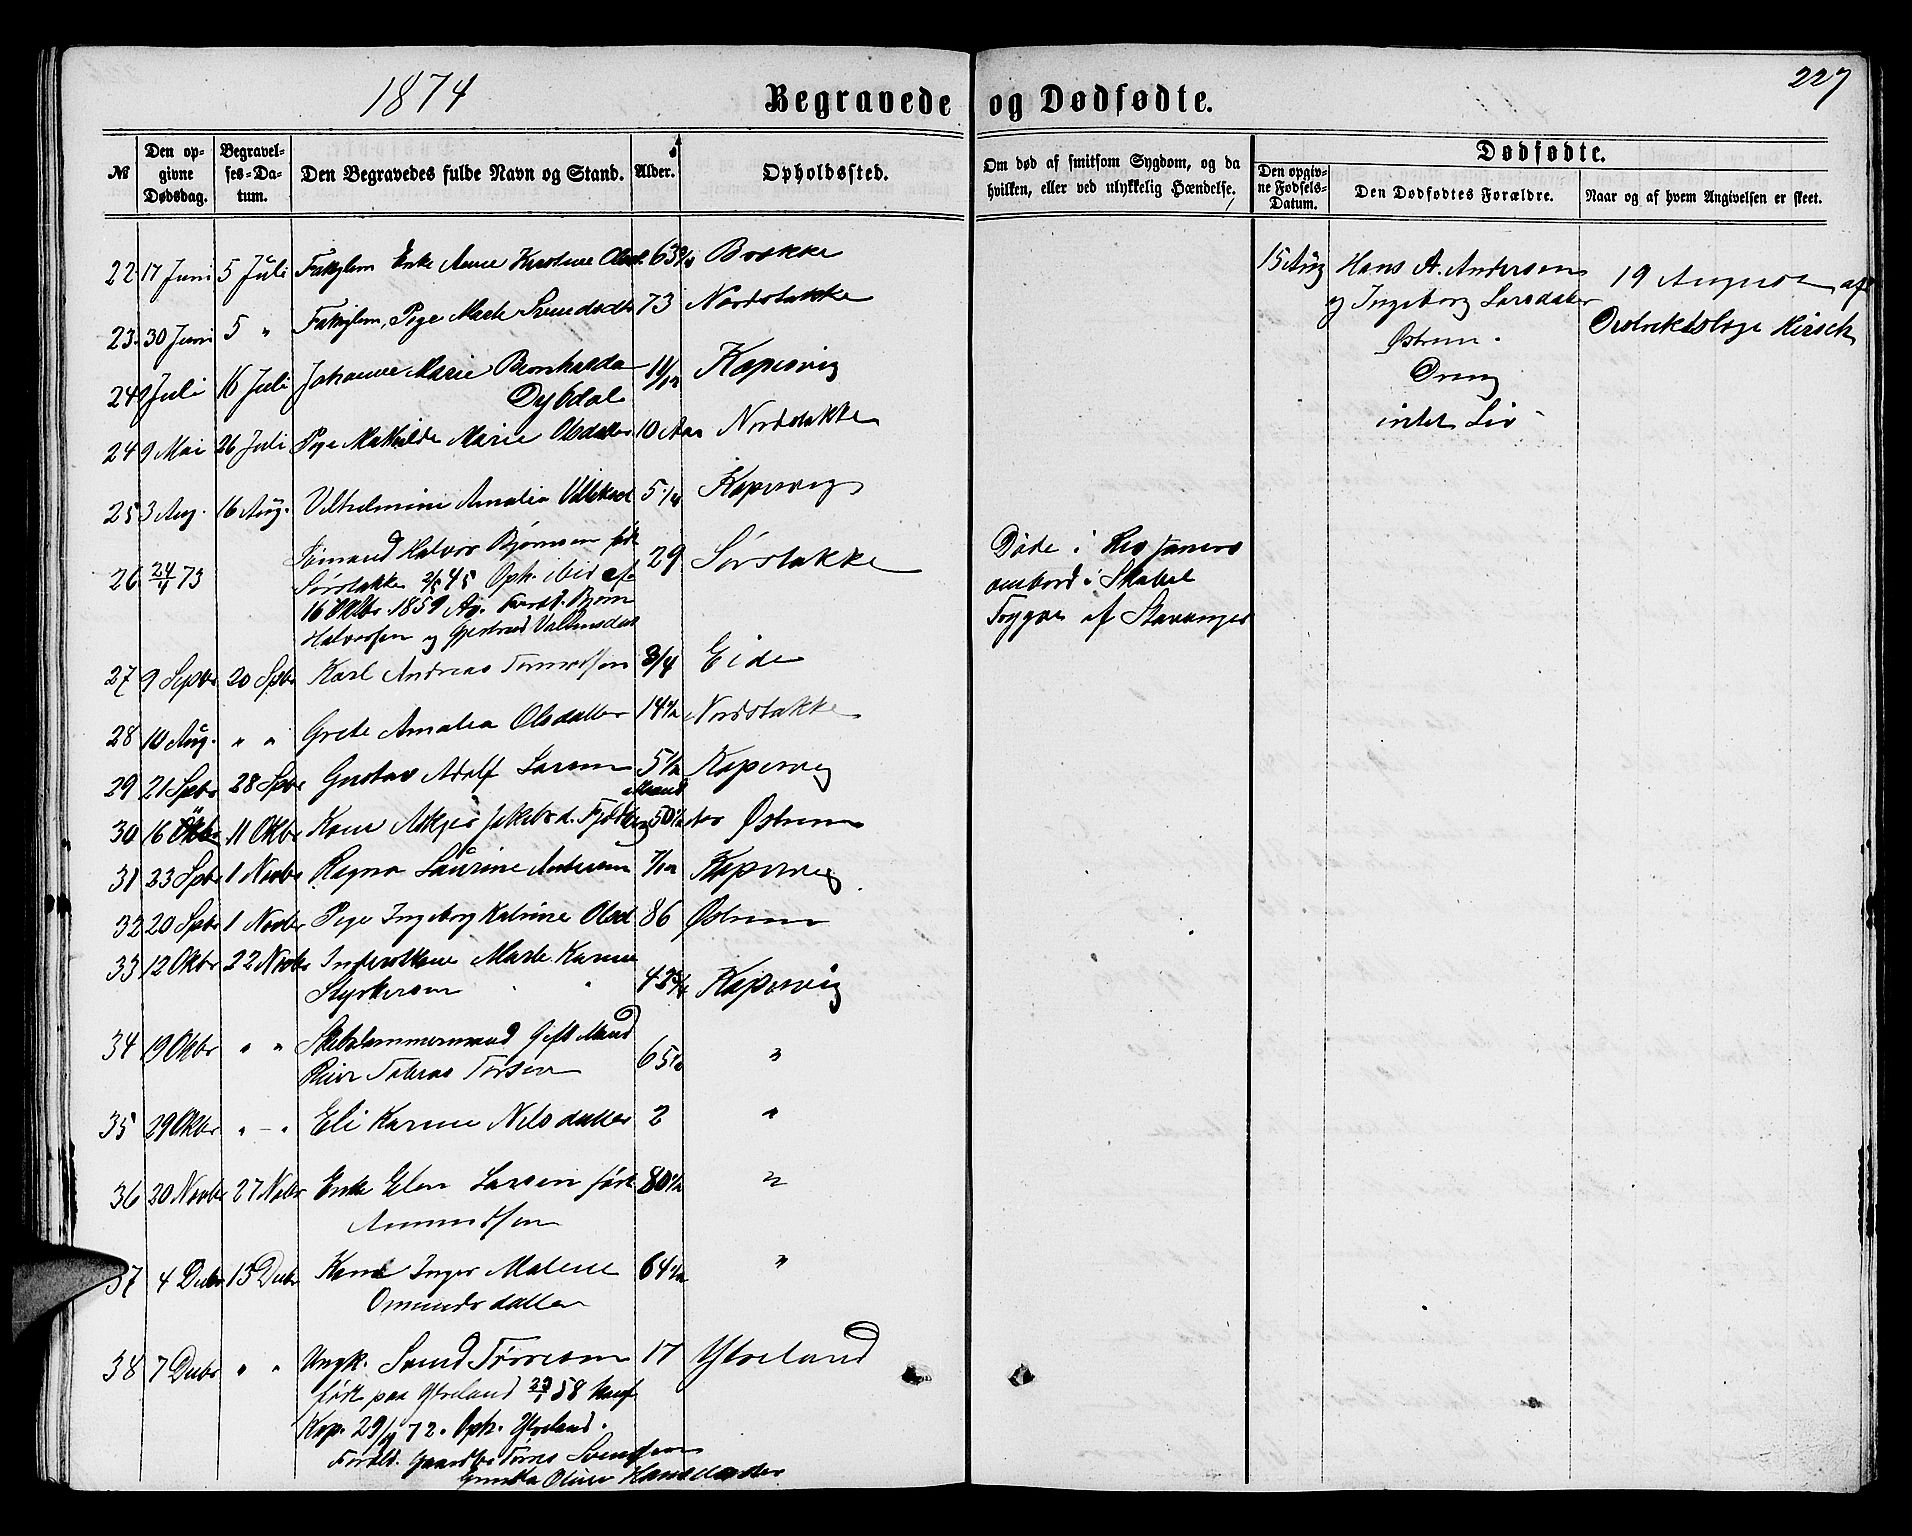 1874
Begravede og Dødfødte.
227
№ Den opgivne Dødsdag. Begravelses-Datum. Den Begravedes fulde Navn og Stand. Alder. Opholdssted. Om død af smitsom Sygdom, og da hvilken, eller ved ulykkelig Hændelse. Dødfødte.
Den opgivne Fødsels-Datum. Den Dødfødtes Forældre. Naar og af hvem Angivelsen er skeet.
22 17 Juni 5 Juli Enke Anne Olsd. 63 Brekke
15 Aug Hans A. Andersen
og Ingeborg Larsdatter
Østrem.
Dreng
intet Liv
19 August af
Distriktslæge Hirsch
23 30 Juni 5 " Pige Marte Svendsdtr 73 Nordstokke
24 9 Juli 16 Juli Johanne Marie
Dybdal 11/12 Kopervig
24 9 Mai 26 Juli Pige Mathilde Marie Olsdatter 10 Aar Nordstokke
25 3 Aug. 16 Aug. Vilhelmine Amalia 5 1/4 Kopervig
26 24/4 73 Sømand Halvor Bjørnsen født
Sørstokke 2/5 45 Oph. ibid
16 Oktbr 1859 Av. Foræld. Bjørn
Halvorsen og Gjertrud
29 Sørstokke
Døde i
ombord i Skibet
Trygve af Stavanger
27 9 Spbr 20 Spbr Karl Andreas 3/4 Eide
28 10 Aug. " " Grete Amalia Olsdatter 14 1/2 Nordstokke
29 21 Spbr 28 Spbr Gustav Adolf Larsen 5 1/2 Kopervig
30 16 Oktbr 11 Oktbr Kone Askjer Jakobsd. 50 1/2 Østrem
31 23 Spbr 1 Novbr Ragna Laurine Andersen 7/12 Kopervig
32 20 Spbr 1 Novbr Pige Ingeborg Katrine Olsd 86 Østrem
33 12 Oktbr 22 Novbr Marte Karine
Styrkersen Kopervig
34 19 Oktbr " " Skibstømmermand Gift Mand
Tobias Torsen 65 1/2 "
35 29 Oktbr " - " Eli Karine Nilsdatter 2 "
36 20 Novbr 27 Nobr Enke Elen Larsen født
Amundsen 80 1/2 "
37 4 Debr 13 Debr Kone Inger Malene
Omundsdatter 64 1/2 "
38 7 Debr " " Ungk. Svend Tørresen 17 Ytreland
født paa Ytreland 23/1 58
Kop. 29/9 72. Oph. Ytreland.
Foræld. Gaardbr Tørres Svendsen
Gunilla Oline Hansdatter